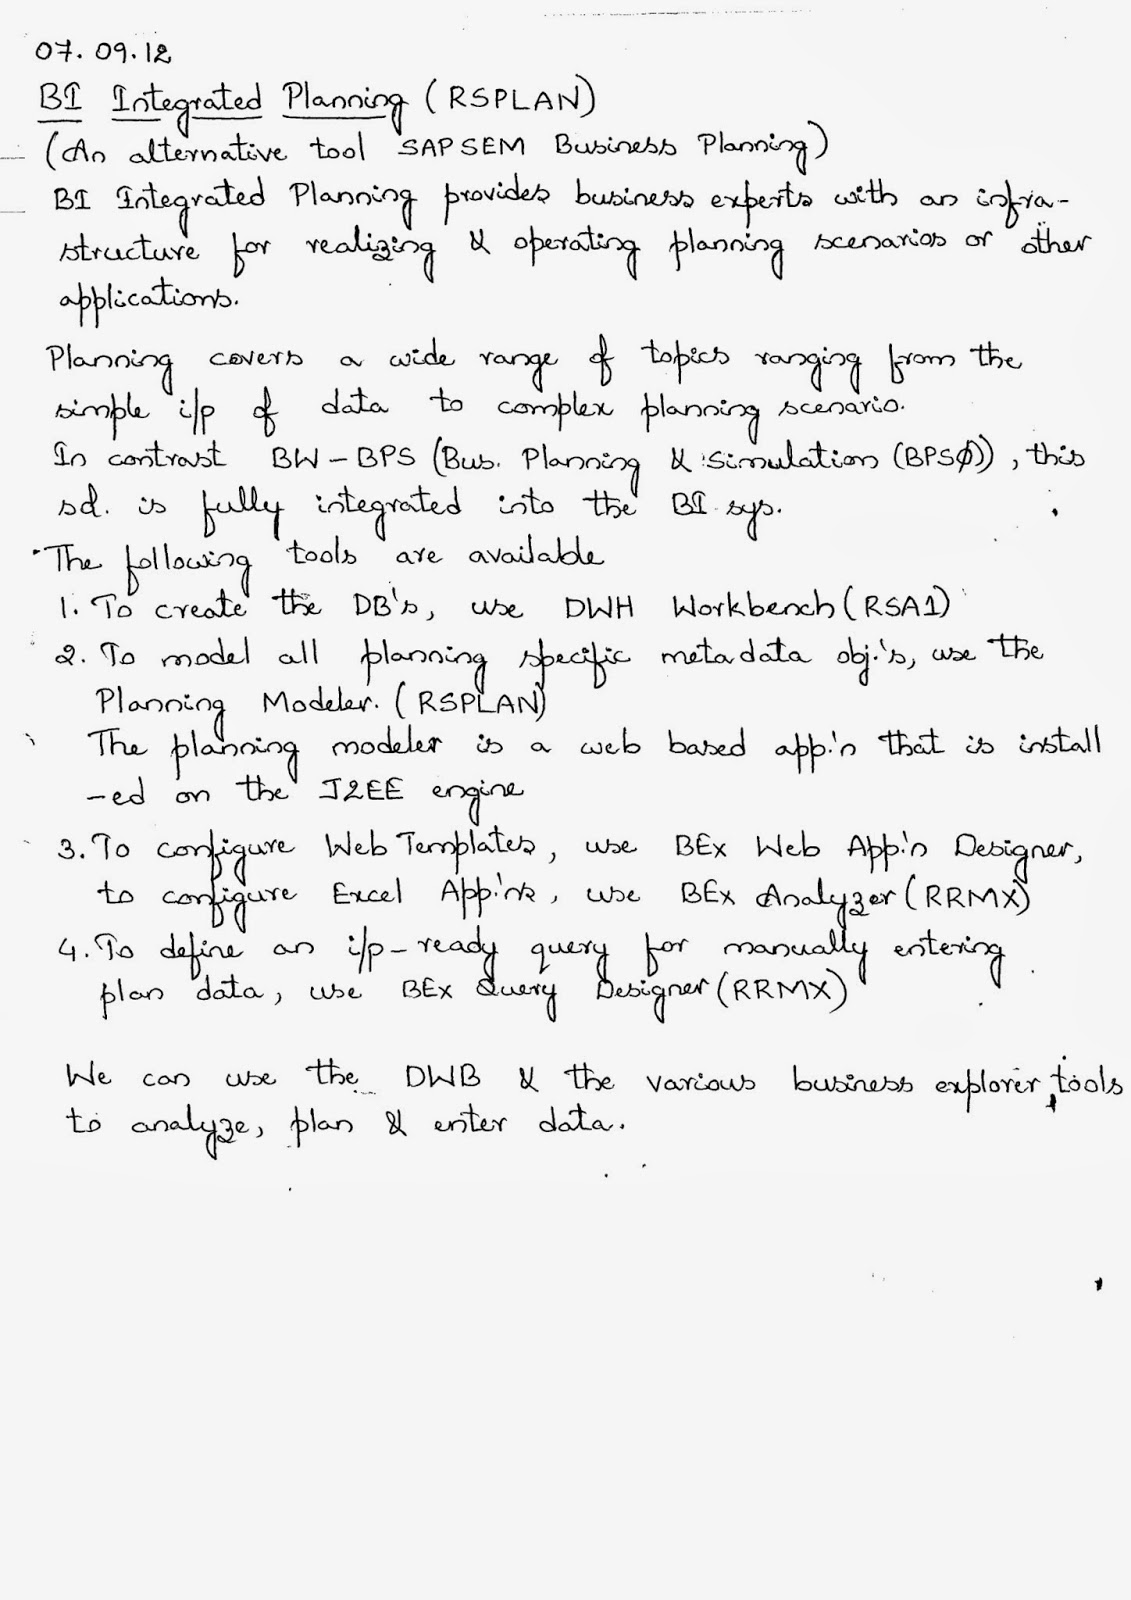 07.09.12
BI Integrated Planning (RSPLAN)
(An alternative tool SAPSEM Business Planning)
BI Integrated Planning provides business experts with an infra-
structure for realizing & operating planning scenarios or other
applications.
Planning covers a wide range of topics ranging from the
simple i/p of data to complex planning scenario.
In contrast BW-BPS (Bus. Planning & Simulation (BPS0)), this
sd. is fully integrated into the BI sys.
The following tools are available
1. To create the DB's, use DWH Workbench (RSA1)
2. To model all planning specific metadata obj.'s, use the
Planning Modeler. (RSPLAN)
The planning modeler is a web based app.'n that is install
-ed on the J2EE engine
3. To configure Web Templates, use BEx Web App.'n Designer,
to configure Excel App.'ns, use BEx Analyzer (RRMX)
4. To define an i/p-ready query for manually entering
plan data, use BEx Query Designer (RRMX)
We can use the DWB & the various business explorer tools
to analyze, plan & enter data.